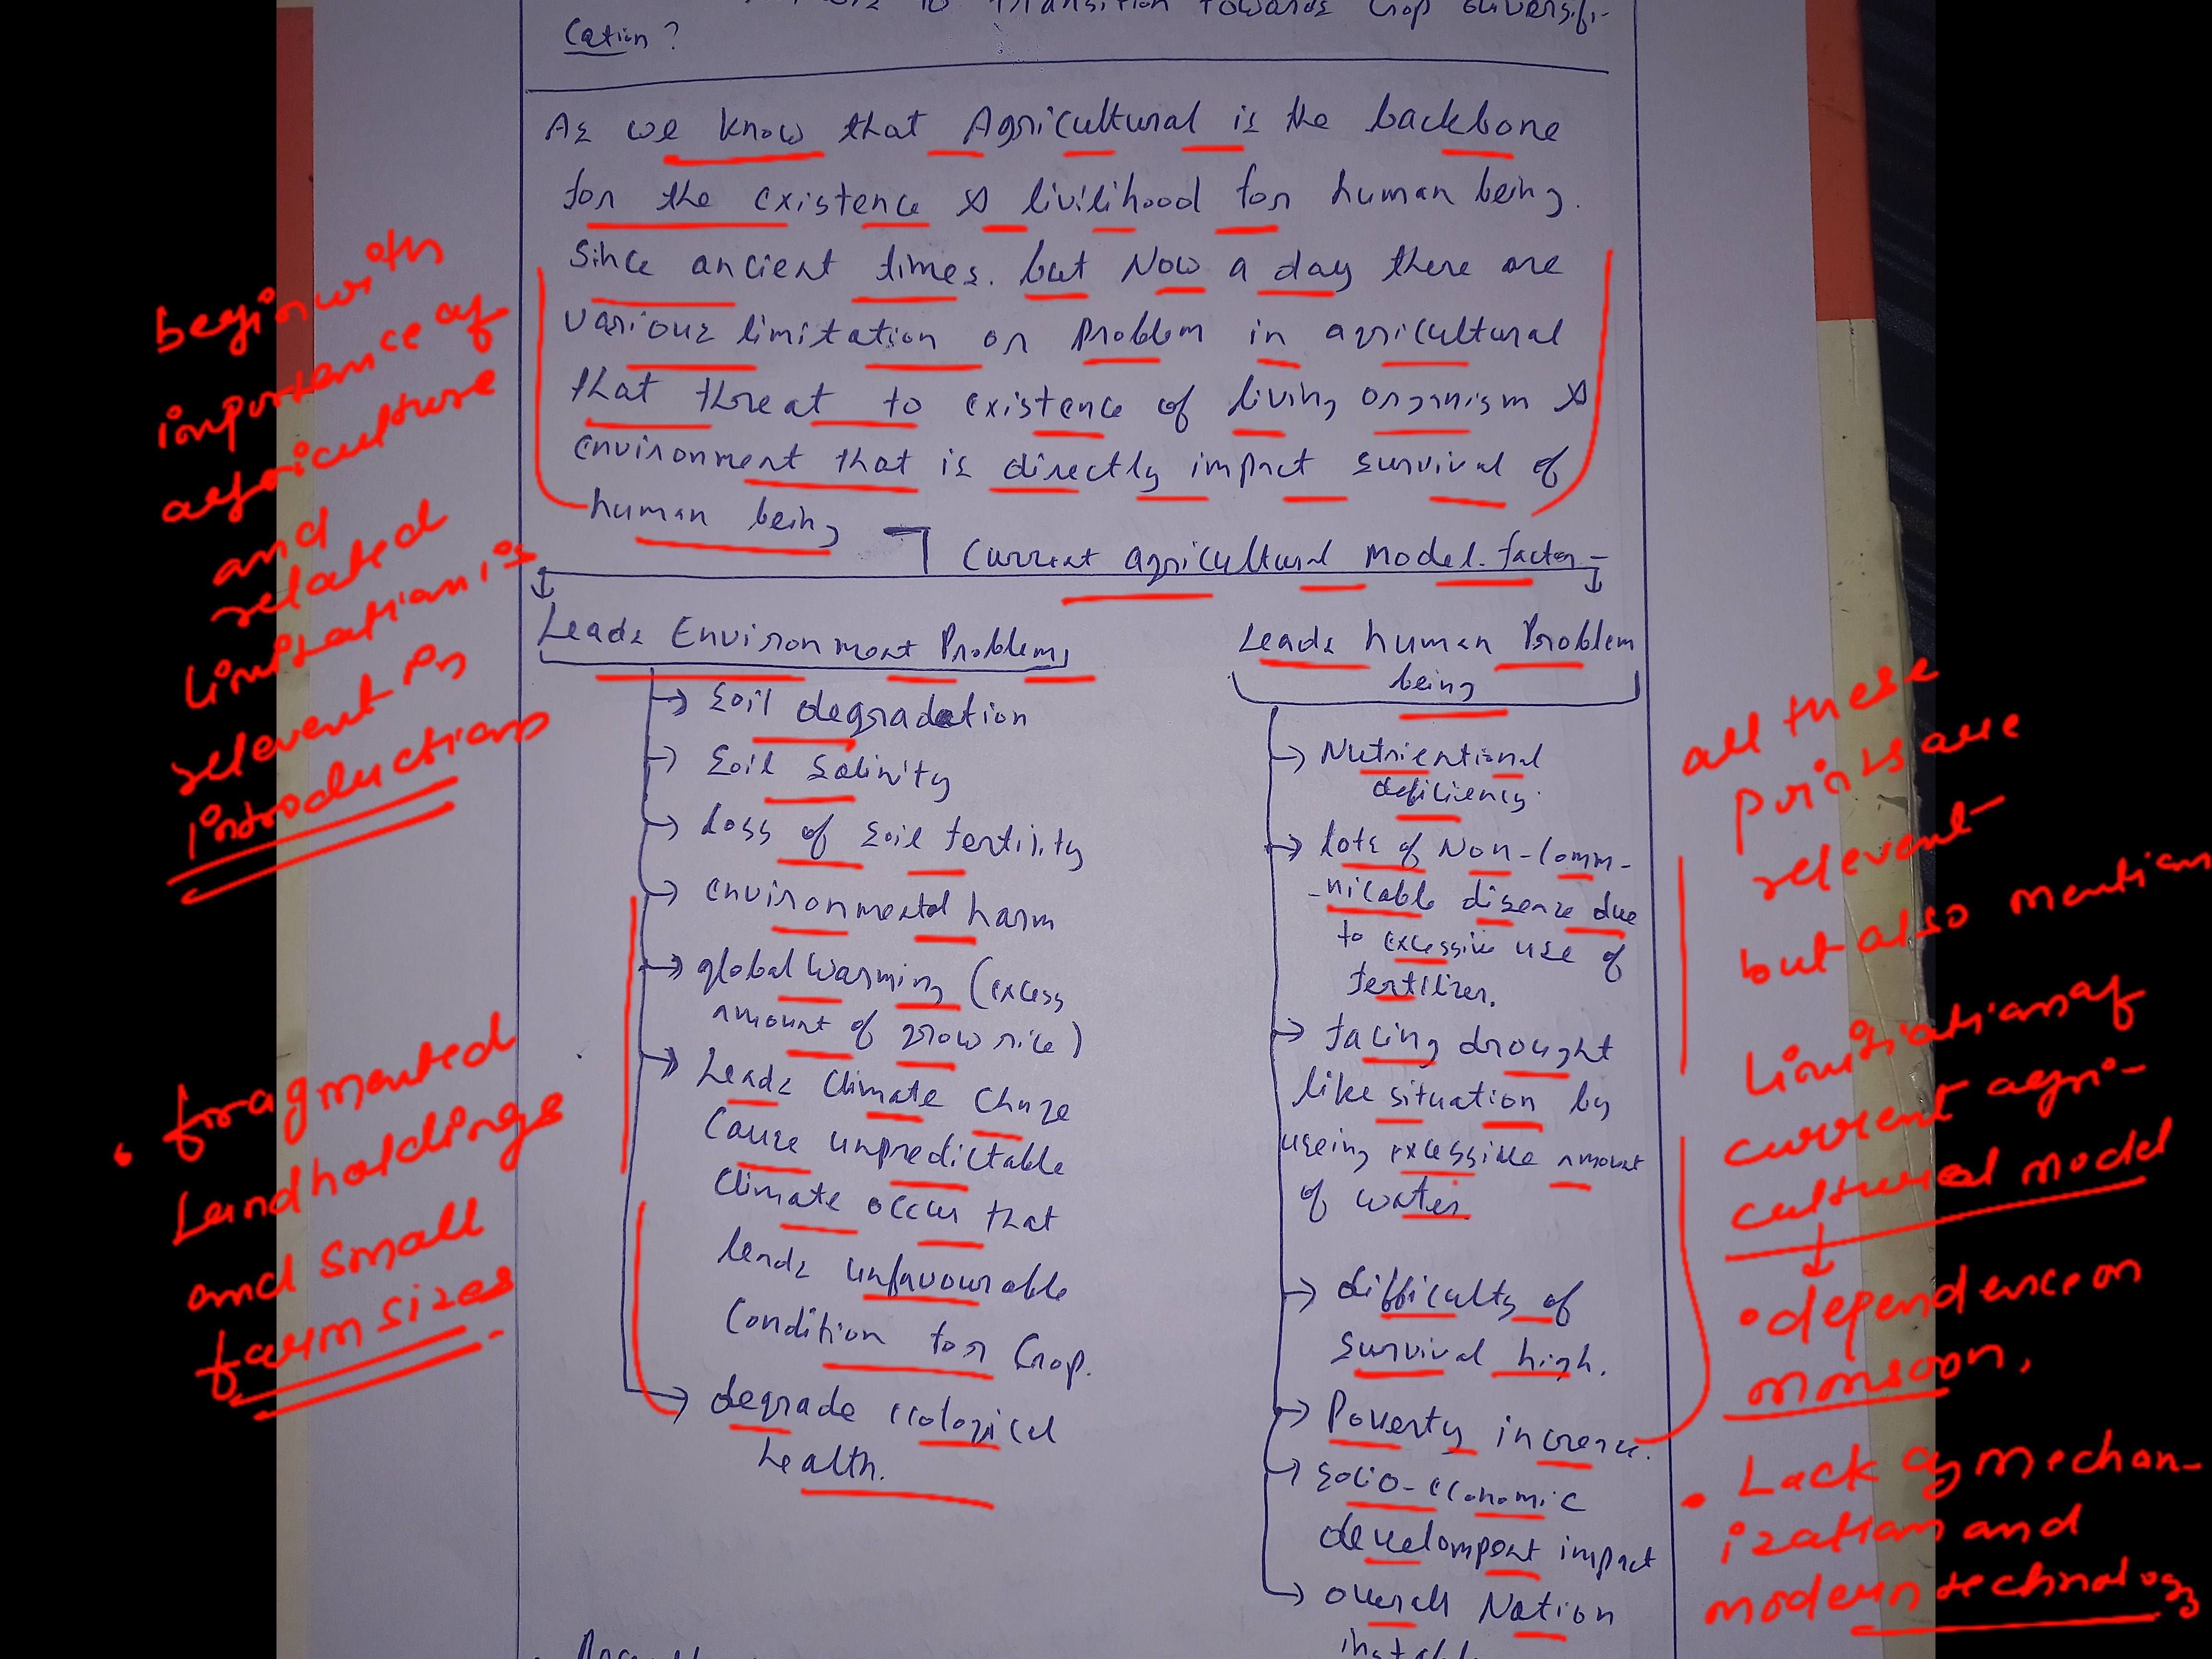 to transition towards crop diversifi-
cation ?
As we know that Agricultural is the backbone
for the existence & livilihood for human being.
Since ancient times. but Now a day there are
various limitation or Problem in agricultural
that threat to existence of living organism &
environment that is directly impact survival of
human being
Current agricultural Model. factor -
Leads Environment Problems
→ Soil degradation
→ Soil Salinity
→ Loss of soil fertility
→ environmental harm
→ global warming (excess
amount of grow rice)
→ Leads Climate Chnze
Cause unpredictable
Climate occur that
leads unfavourable
Condition for Crop.
→ degrade ecological
health.
Leads human Problem
being
→ Nutrientional
deficiency.
→ lots of Non-Comm-
-nicable disease due
to excessive use of
fertilizer.
→ facing drought
like situation by
useing excessive amount
of water
→ difficulty of
survival high.
→ Poverty increase.
→ Socio-economic
develompent impact
→ overall Nation
begin with
importance of
agriculture
and
related
limitation is
relevent in
introduction
• fragmented
Landholdings
and small
farm sizes
all these
points are
relevent
but also mention
limitation of
current agri-
cultural model
• dependence on
monsoon.
• Lack of mechan-
ization and
modern technology